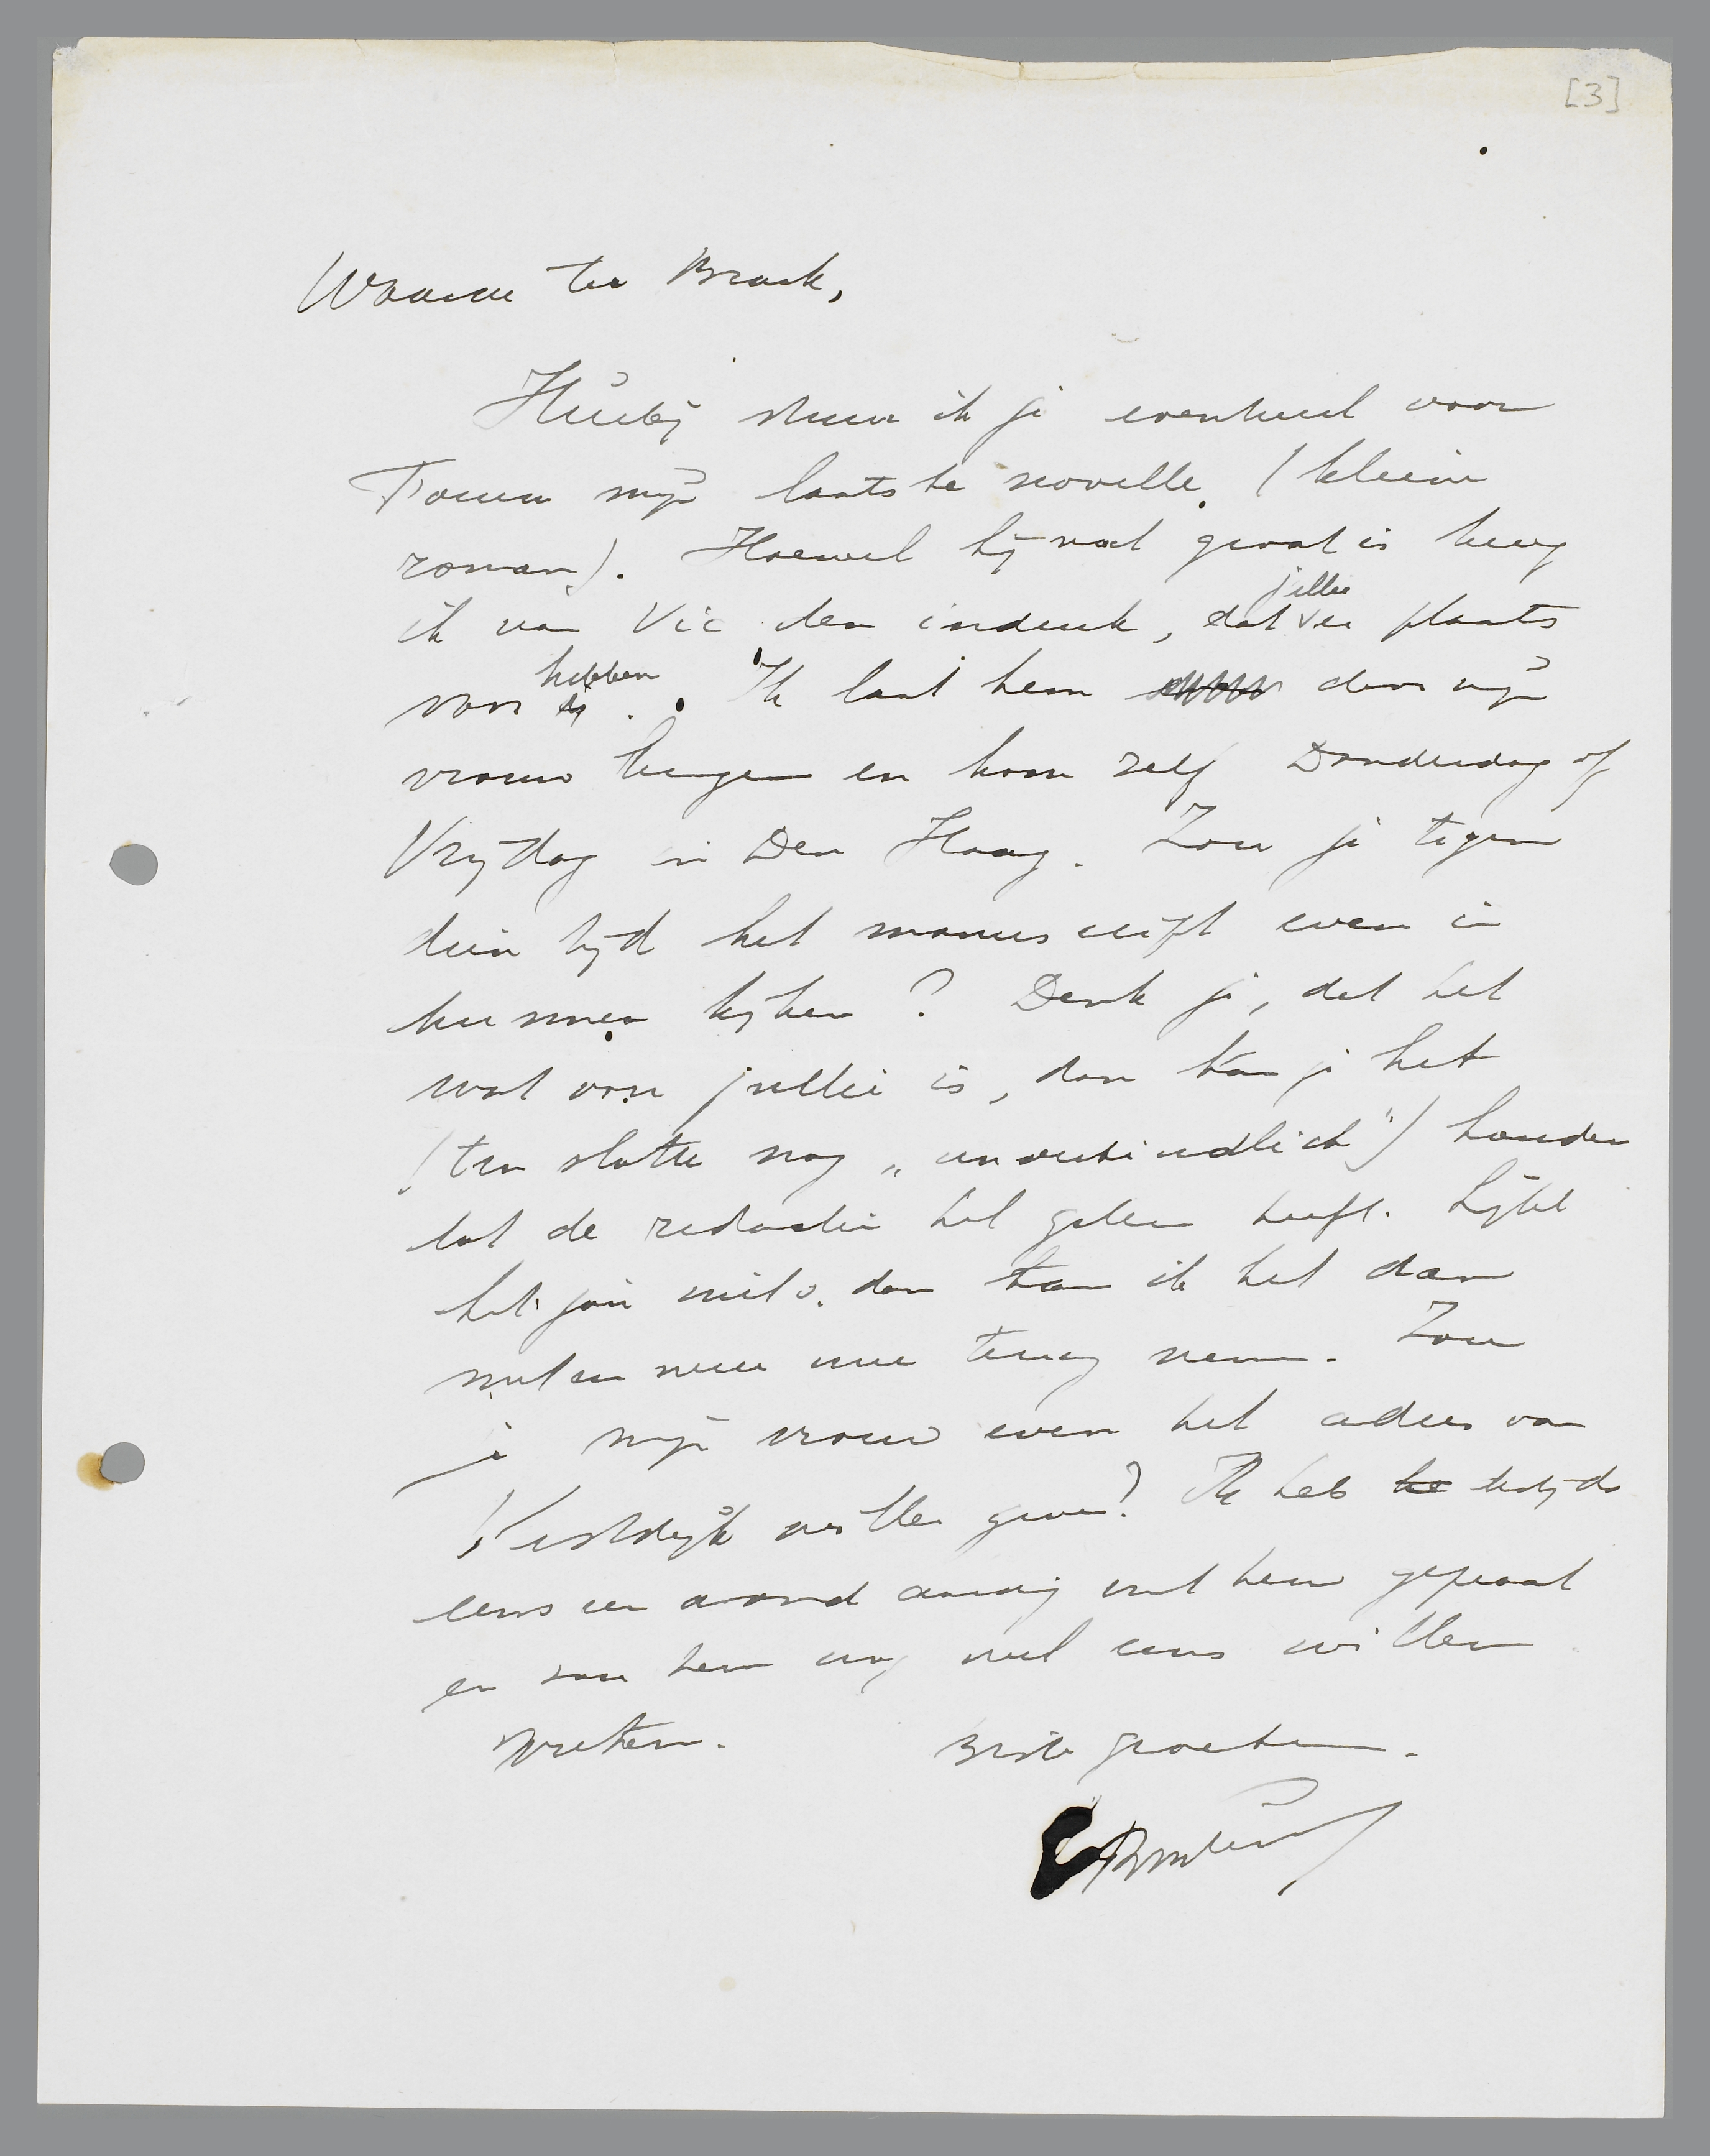 [3]
Waarde ter Braak,
Hierbij stuur ik je eventueel voor
Forum mijn laatste novelle (kleine
roman). Hoewel hij wat groot is kreeg
ik van Vic den indruk, dat jullie er plaats
voor hebben. Ik laat hem door mijn
vrouw brengen en kom zelf Donderdag of
Vrijdag in Den Haag. Zou je tegen
dien tijd het manuscript even in
kunnen kijken? Denk je, dat het
wat voor jullie is, dan kan je het
(ten slotte nog „unverbindlich") houden
tot de redactie het gelezen heeft. Lijkt
het jou niets, dan kan ik het dan
meteen weer mee terug nemen. Zou
je mijn vrouw even het adres van
Vestdijk willen geven? Ik heb he destijds
eens een avond aardig met hem gepraat
en zou hem nog wel eens willen
spreken. Beste groeten.